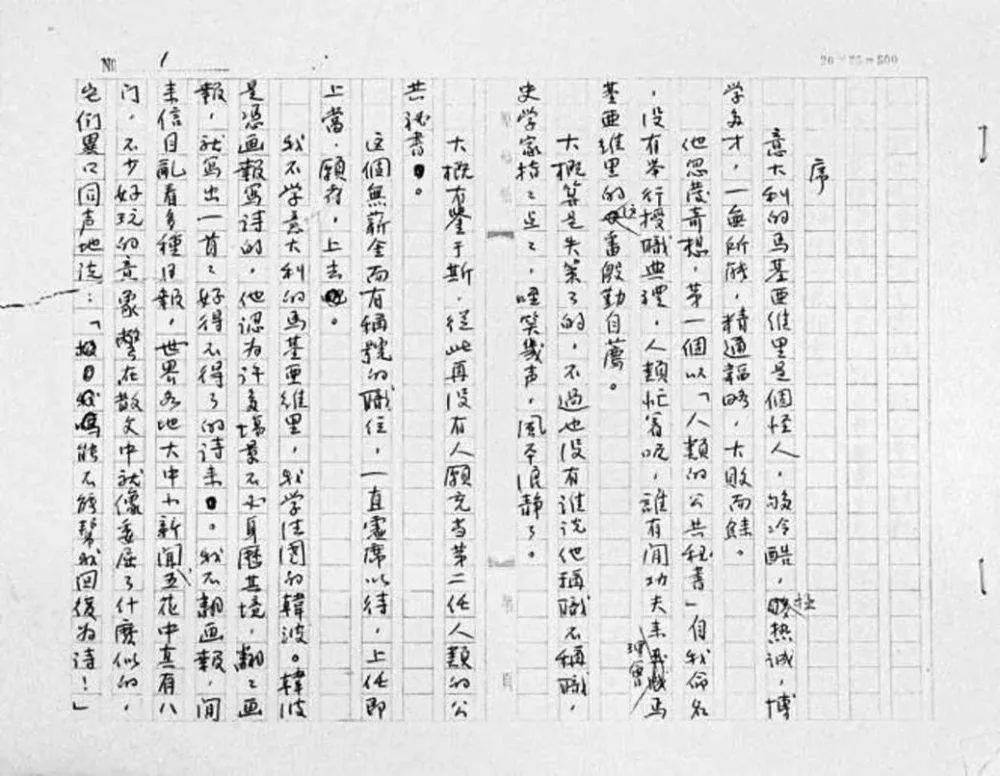 № 1
20×25=500
序
意大利的馬基亜維里是個怪人，够冷酷，极热誠，博
学多才，一無所能，精通韜略，大敗而雠。
他忽發奇想，第一個以「人類的公共秘書」自我命名
，没有举行授職典礼，人類忙着呢，誰有闲功夫来理會馬
基亜維里的這番殷勤自薦。
大概算是失策了的，不過也没有谁说他稱職不稱職，
史学家持之，哑笑幾声，風平浪静了。
大概有鉴于斯，從此再没有人願充当第二任人類的公
共秘書。
这個無薪金而有稱號的職位，一直虚席以待，上任即
上當，願者，上去。
我不学意大利的馬基亜維里，我学法国的韓波。韓波
是凭画報写诗的，他認为许多場景不必身歷其境，翻翻画
報，就写出一首首好得不得了的诗来。我不翻画報，闲
来信目亂看多種日報，世界各地大中小新闻五花中真有八
门，不少好玩的意象鱉在散文中就像委屈了什麼似的，
它们異口同声地说：「能不能幫我回復为诗！」